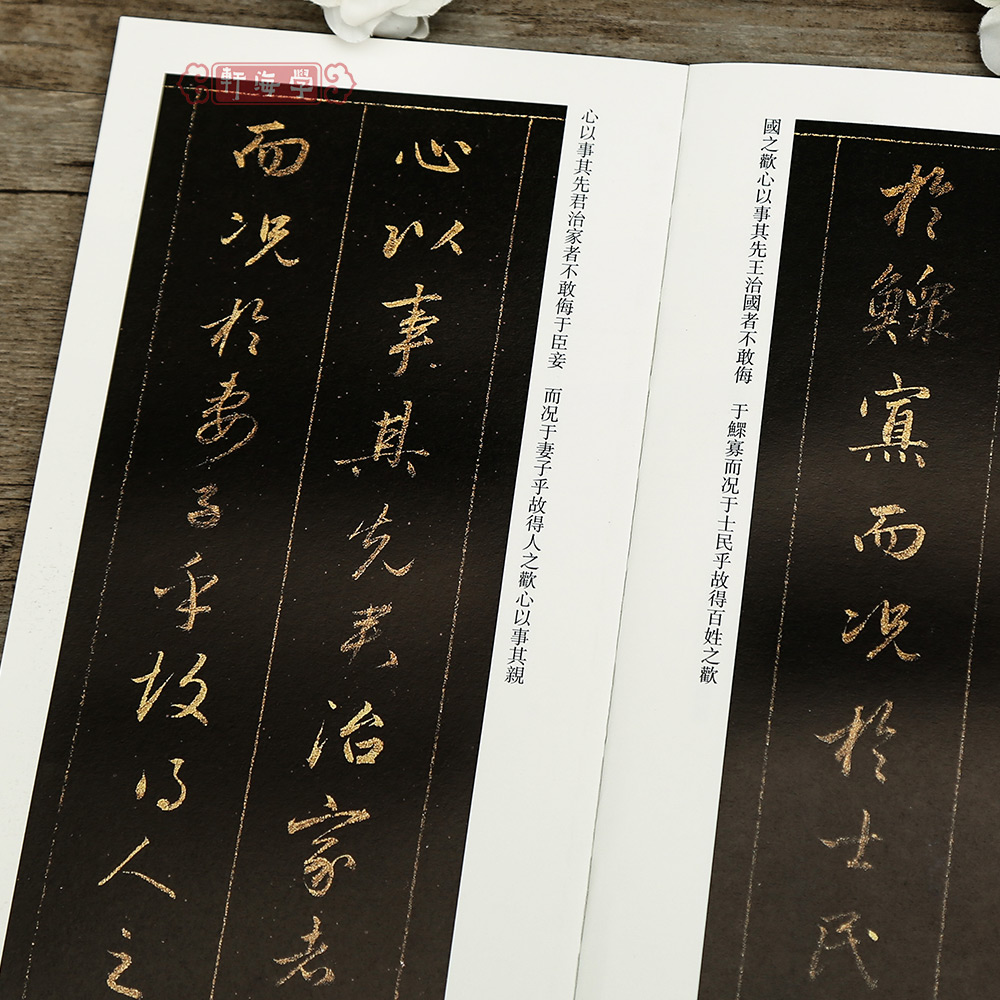 學海軒
於鰥寡而况於士民
國之歡心以事其先王治國者不敢侮 于鰥寡而况于士民乎故得百姓之歡
心以事其先君治家者不敢侮于臣妾 而况于妻子乎故得人之歡心以事其親
心以事其先君治家者
而况於妻子乎故得人之